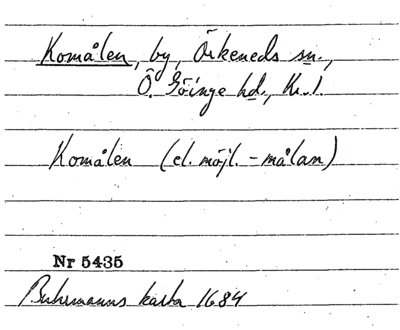 Komålen, by, Örkeneds sn.,
Ö. Göinge hd., Kr. l.
Komålen (el. möjl. -målam)
Nr 5435
Buhrmanns karta 1684